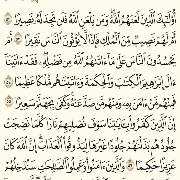 أُولَٰئِكَ الَّذِينَ لَعَنَهُمُ اللَّهُ وَمَن يَلْعَنِ اللَّهُ فَلَن تَجِدَ لَهُ نَصِيرًا ٥٢
أَمْ لَهُمْ نَصِيبٌ مِّنَ الْمُلْكِ فَإِذًا لَّا يُؤْتُونَ النَّاسَ نَقِيرًا ٥٣ أَمْ
يَحْسُدُونَ النَّاسَ عَلَىٰ مَا آتَاهُمُ اللَّهُ مِن فَضْلِهِ فَقَدْ آتَيْنَا
آلَ إِبْرَاهِيمَ الْكِتَابَ وَالْحِكْمَةَ وَآتَيْنَاهُم مُّلْكًا عَظِيمًا ٥٤
فَمِنْهُم مَّنْ آمَنَ بِهِ وَمِنْهُم مَّن صَدَّ عَنْهُ وَكَفَىٰ بِجَهَنَّمَ سَعِيرًا ٥٥
إِنَّ الَّذِينَ كَفَرُوا بِآيَاتِنَا سَوْفَ نُصْلِيهِمْ نَارًا كُلَّمَا نَضِجَتْ
جُلُودُهُم بَدَّلْنَاهُمْ جُلُودًا غَيْرَهَا لِيَذُوقُوا الْعَذَابَ إِنَّ اللَّهَ كَانَ
عَزِيزًا حَكِيمًا ٥٦ وَالَّذِينَ آمَنُوا وَعَمِلُوا الصَّالِحَاتِ سَنُدْخِلُهُمْ